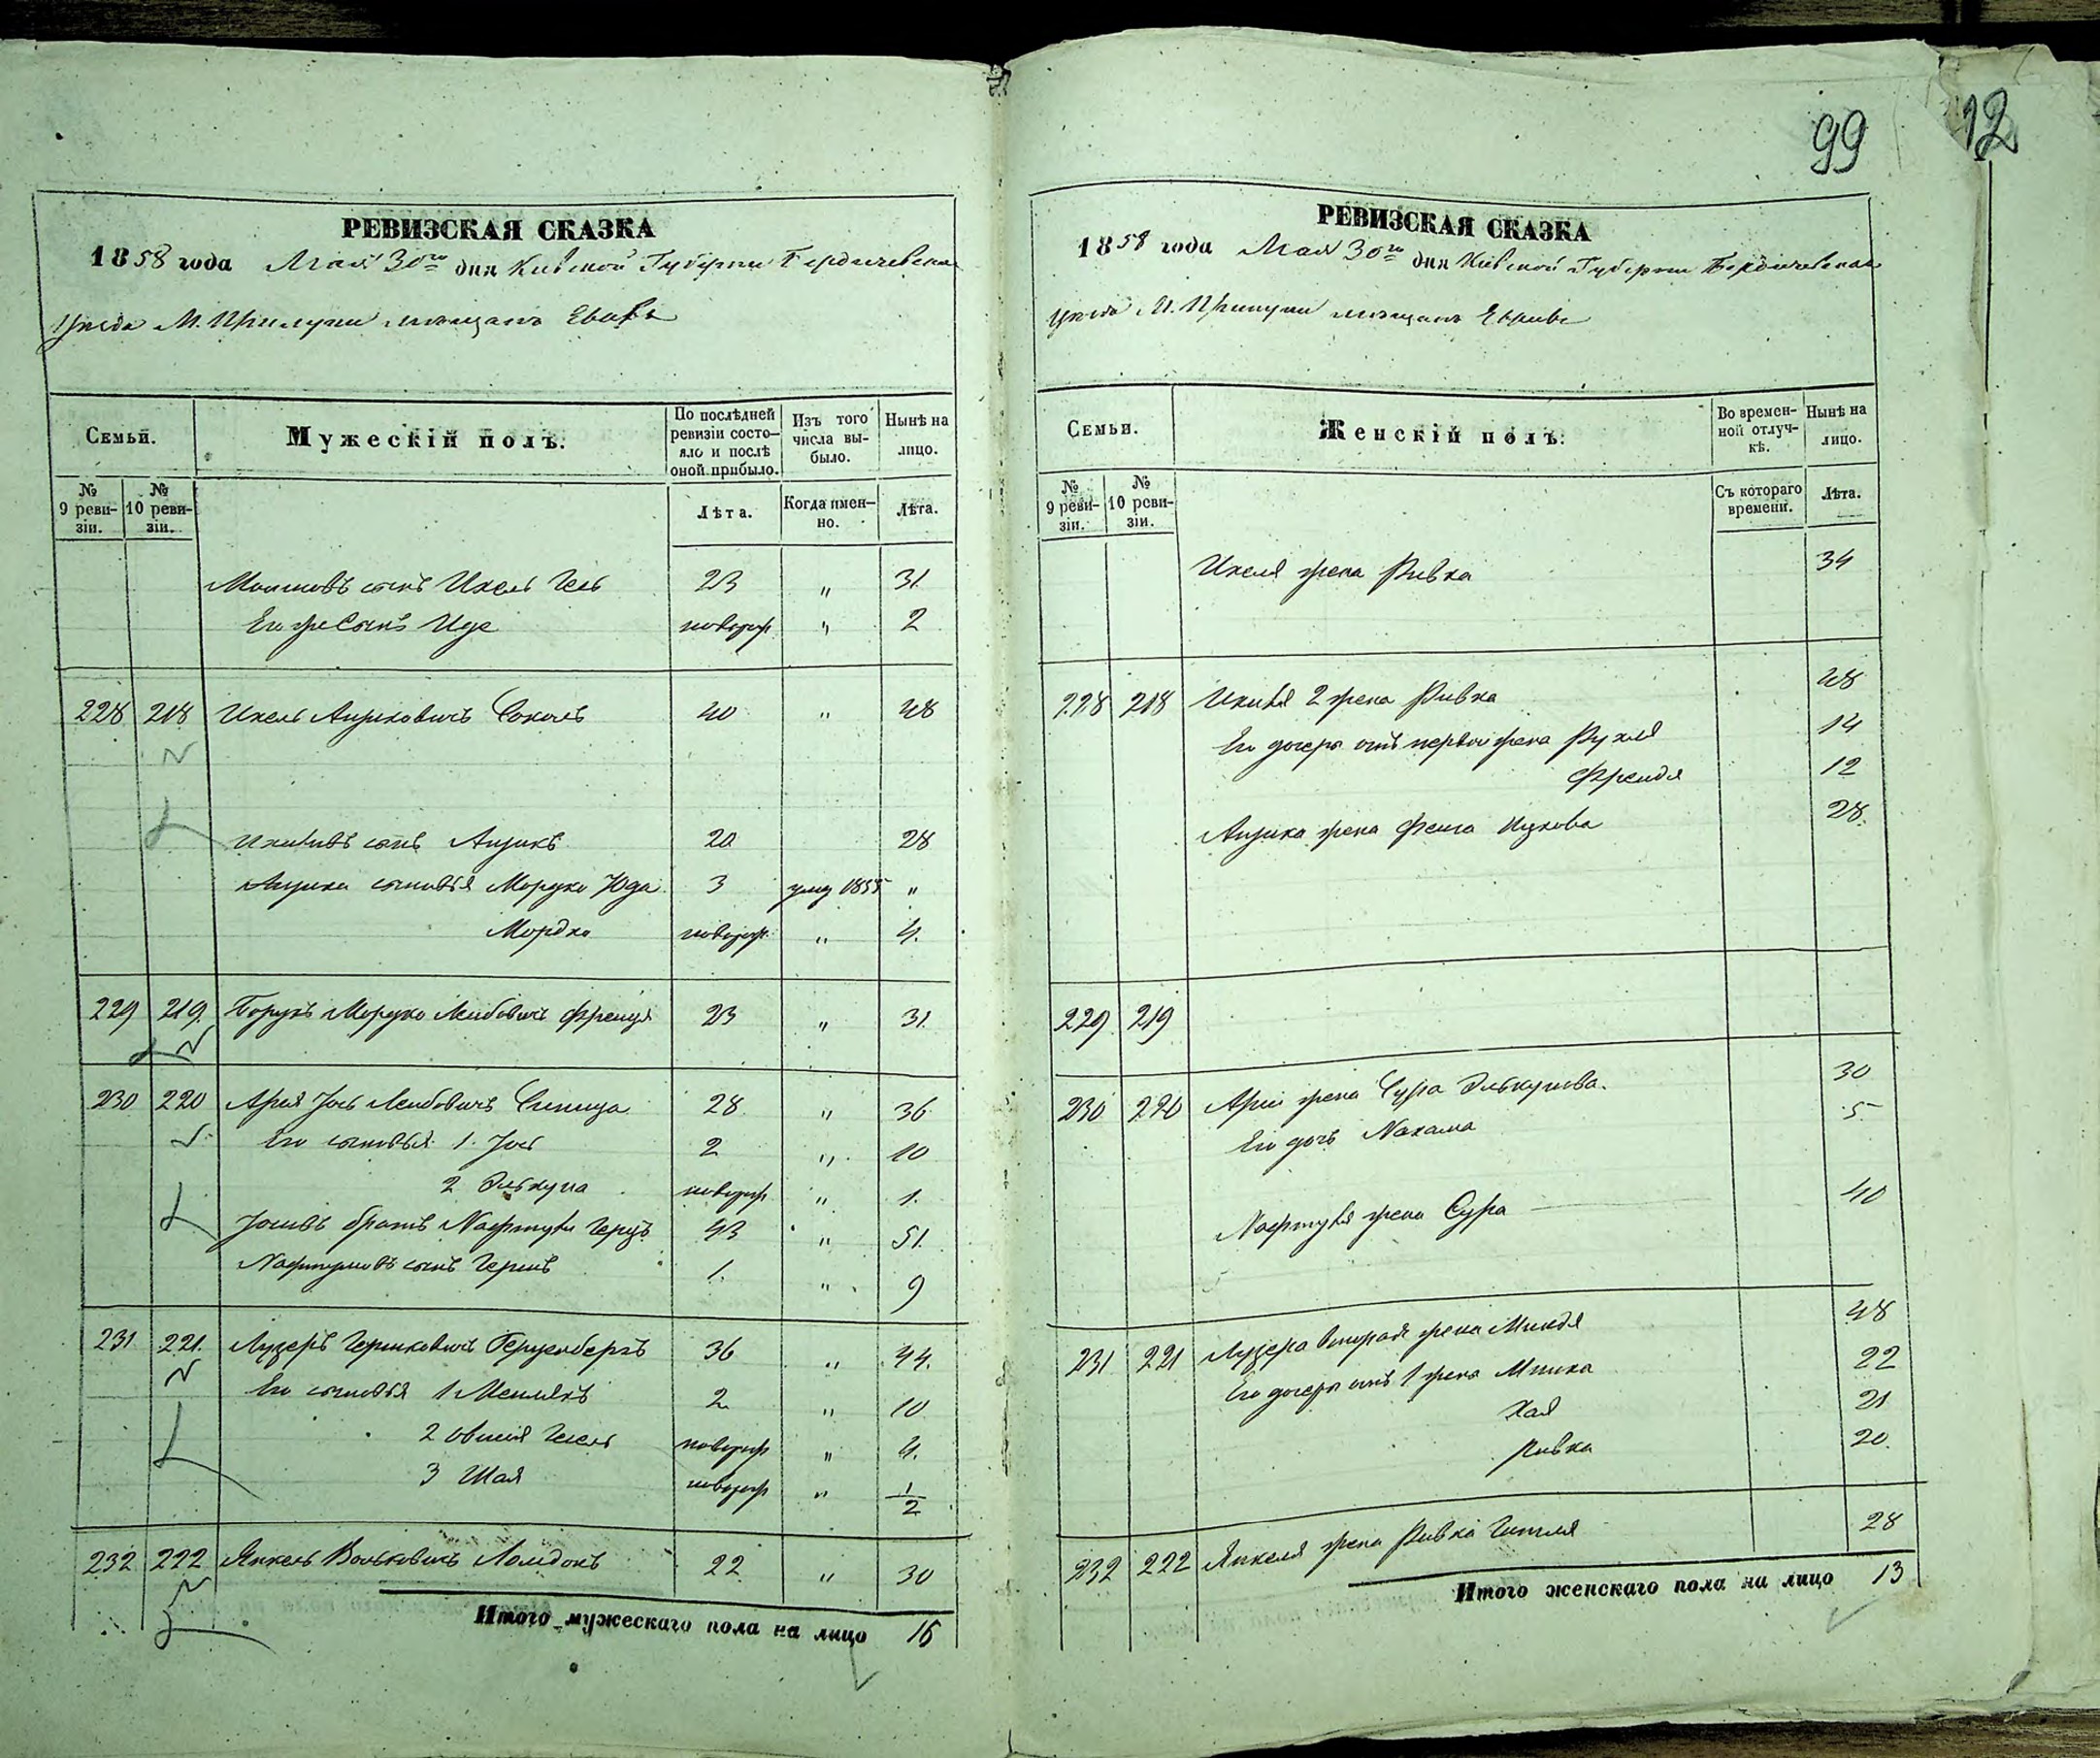 99
12
РЕВИЗСКАЯ СКАЗКА
1858 года Мая 30го дня Киевской Губернии Бердичевскаго
Уѣзда М. Прилуки мѣщанъ Евреевъ
Семьи.
Мужескій полъ.
По послѣдней ревизіи состояло и послѣ оной прибыло.
Изъ того числа выбыло.
Нынѣ на лицо.
№ 9 ревизіи.
№ 10 ревизіи.
Лѣта.
Когда именно.
Лѣта.
сынъ Ихель 23 " 31
Его же Сынъ новорож " 2
228 218 Ихель Айзиковичъ Соколъ 40 " 48
сынъ Айзикъ 20 28
Айзика сыновья Мордко Юда 3 умер 1855 "
Мордко новорож " 4.
229 219. Борухъ Мордко Лейбовичъ 23 " 31.
230 220 Арья Йось Лейбовичъ Синица 28 " 36
Его сыновья 1. Йось 2 " 10
2 Элькуна новорож " 1.
братъ Нафтула Герцъ 43 " 51.
сынъ 1. " 9
231 221. Лузеръ Гершковичъ 36 " 44.
Его сыновья 1 2 " 10
2 новорож " 4.
3 Шая новорож " 1/2
232 222 Янкель Вольковичъ 22 " 30
Итого мужескаго пола на лицо 15
РЕВИЗСКАЯ СКАЗКА
1858 года Мая 30го дня Киевской Губернии Бердичевскаго
Уѣзда М. Прилуки мѣщанъ Евреевъ
Семьи.
Женскій полъ.
Во временной отлучкѣ.
Нынѣ на лицо.
№ 9 ревизіи.
№ 10 ревизіи.
Съ котораго времени.
Лѣта.
Ихеля жена Ривка 34
228 218 2 жена Ривка 48
Его дочери отъ первой жены Рухля 14
Фрейда 12
Айзика жена Фейга Ицкова 28.
229 219
230 220 Арьи жена Сура Элькунова. 30
Его дочь Нахама 5
Нафтулы жена Сура 40
231 221 Лузера вторая жена Миндя 48
Его дочери отъ 1 жены 22
Хая 21
Ривка 20.
232 222 Янкеля жена Ривка Гитля 28
Итого женскаго пола на лицо 13